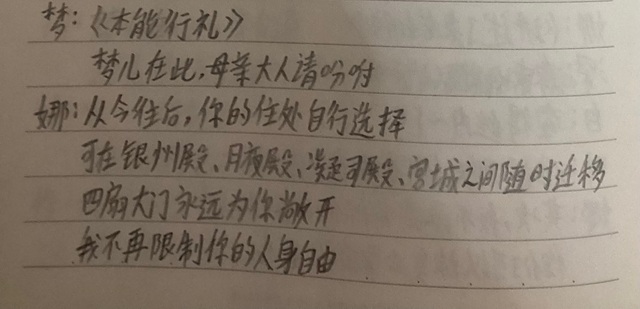 梦:《本能行礼》
梦儿在此,母亲大人请吩咐
娜:从今往后,你的住处自行选择
可在银州殿、月夜殿、凝司殿、宫城之间随时迁移
四扇大门永远为你敞开
我不再限制你的人身自由